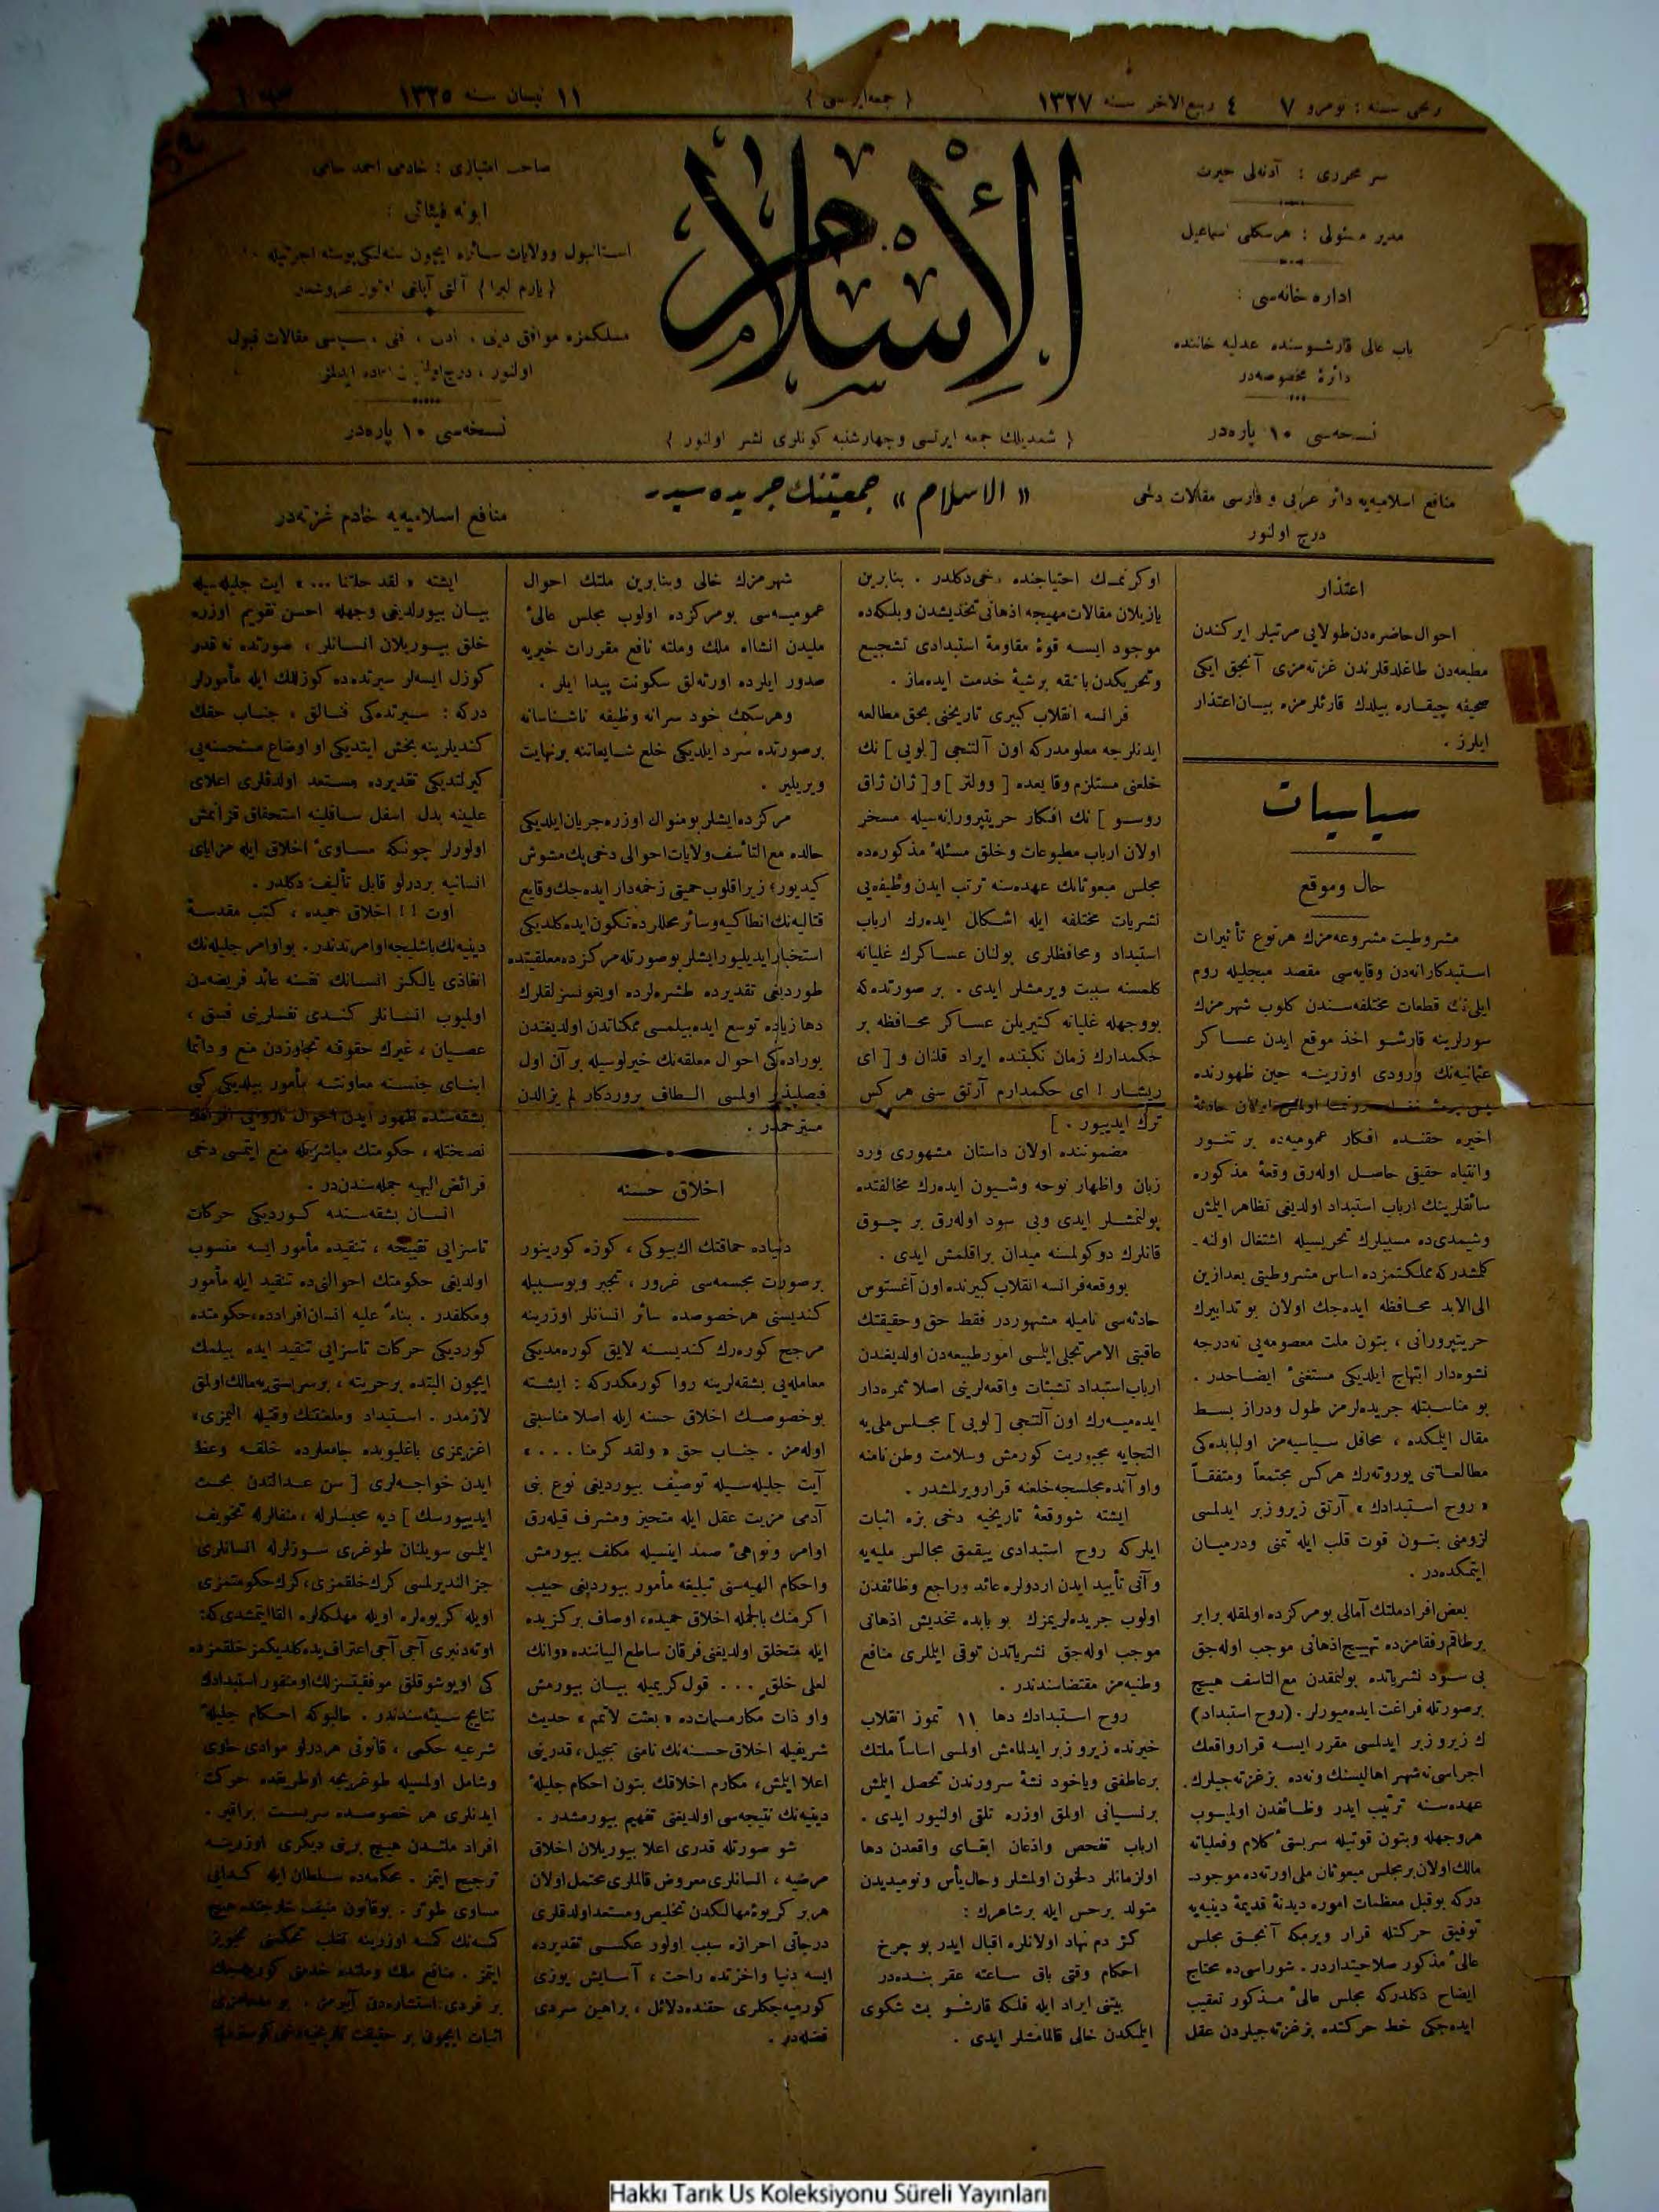 سنه : نومرو ٧
٤ ربيع الآخر سنه ١٣٢٧
{ جمعه ايرتسی }
١١ نيسان سنه ١٣٢٥
سر محرری : آدنه‌لی حيرت
مدير مسئولی : هرسكلی اسماعيل
اداره خانه‌سی :
باب عالی قارشوسنده عدليه خاننده
دائرهٔ مخصوصه‌در
نسخه‌سی ١٠ پاره‌در
الإسلام
{ شمديلك جمعه ايرتسی وچهارشنبه كونلری نشر اولنور }
صاحب امتيازی : خادمی احمد
ابونه فيئاتی :
استانبول وولايات سائره ايچون سنه‌لكی پوسته اجرتيله
{ يارم ليرا } آلتی آيلغی اوتوز غروشدر
مسلكمزه موافق دينی ، ادبی ، فنی ، سياسی مقالات قبول
اولنور ، درج اولنميان اعاده ايدلمز
نسخه‌سی ١٠ پاره‌در
منافع اسلاميه‌يه دائر عربی و فارسی مقالات دخی
درج اولنور
« الاسلام » جمعيتنك جريده سيدر
منافع اسلاميه‌يه خادم غزته‌در
اعتذار
احوال حاضره‌دن طولايی مرتبلر ايركندن
مطبعه‌دن طاغلدقلرندن غزته‌مزی آنجق ايكی
صحيفه چيقاره بيلدك قارئلرمزه بيان اعتذار
ايلرز .
سياسيات
حال وموقع
مشروطيت مشروعه‌مزك هرنوع تأثيرات
استبدكارانه‌دن وقايه‌سی مقصد مبجليله روم
ايلی‌نك قطعات مختلفه‌سندن كلوب شهرمزك
سورلرينه قارشو اخذ موقع ايدن عساكر
عثمانيه‌نك ورودی اوزرينه حين ظهورنده
اخيره حقنده افكار عموميه‌ده بر تنور
وانتباه حقيقی حاصل اوله‌رق وقعهٔ مذكوره
سائقلرينك ارباب استبداد اولديغی تظاهر ايلمش
وشيمدی‌ده مسببلرك تحريسيله اشتغال اولنه‌
كلمشدركه مملكتمزده اساس مشروطيتی بعدازين
الی‌الابد محافظه ايده‌جك اولان بو تدابيرك
حريتپرورانی ، بتون ملت معصومه‌يی نه‌درجه
نشوه‌دار ابتهاج ايلديكی مستغنیٔ ايضاحدر .
بو مناسبتله جريده‌لرمز طول ودراز بسط
مقال ايلمكده ، محافل سياسيه‌مز اولبابده‌كی
مطالعاتنی يوروته‌رك هركس مجتمعاً ومتفقاً
« روح استبدادك » آرتق زيروزبر ايدلمسی
لزومنی بتون قوت قلب ايله تمنی ودرميان
ايتمكده‌در .
بعض افراد ملتك آمالی بومركزده اولمقله برابر
برطاقم رفقامزده تهييج اذهانی موجب اوله‌جق
بی سود نشرياتده بولنمقدن مع التاسف هيچ
برصورتله فراغت ايده‌ميورلر . (روح استبداد)
ك زيروزبر ايدلمسی مقرر ايسه قرارواقعك
اجراسی نه شهر اهاليسنك ونه‌ده بز غزته‌جيلرك
عهده‌سنه ترتيب ايدر وظائفدن اولميوب
هروجهله وبتون قوتيله سربستیٔ كلام وفعلياته
مالك اولان برمجلس مبعوثان ملی اورته‌ده موجود‌
دركه بوقبيل معظمات اموره ديدنهٔ قديمهٔ دينيه‌يه
توفيق حركتله قرار ويرمكه آنجق مجلس
عالیٔ مذكور صلاحيتداردر . شوراسی‌ده محتاج
ايضاح دكلدركه مجلس عالیٔ مذكور تعقيب
ايده‌جكی خط حركتده بز غزته‌جيلردن عقل
اوكرنمك احتياجنده دخی دكلدر . بنابرين
يازيلان مقالات مهيجه اذهانی تخديشدن وبلكه‌ده
موجود ايسه قوهٔ مقاومهٔ استبدادی تشجيع
وتحريكدن باشقه برشيئه خدمت ايده‌ماز .
فرانسه انقلاب كبيری تاريخنی بحق مطالعه
ايدنلرجه معلومدركه اون آلتنجی [ لويی ] نك
خلعنی مستلزم وقايعده [ وولتر ] و [ ژان ژاق
روسو ] نك افكار حريتپرورانه‌سيله مسخر
اولان ارباب مطبوعات وخلق مسئلهٔ مذكوره‌ده
مجلس مبعوثانك عهده‌سنه ترتب ايدن وظيفه‌يی
نشريات مختلفه ايله اشكال ايده‌رك ارباب
استبداد ومحافظلری بولنان عساكرك غليانه
كلمسنه سببت ويرمشلر ايدی . بر صورتده‌كه
بووجهله غليانه كتيريلن عساكر محافظه بر
حكمدارك زمان نكبتنده ايراد قلنان و [ ای
ريشار ! ای حكمدارم آرتق سنی هركس
ترك ايدييور . ]
مضموننده اولان داستان مشهوری ورد
زبان واظهار نوحه وشيون ايده‌رك مخالفتده
بولنمشلر ايدی وبی سود اوله‌رق بر چوق
قانلرك دوكولمسنه ميدان براقلمش ايدی .
بووقعه فرانسه انقلاب كبيرنده اون آغستوس
حادثه‌سی ناميله مشهوردر فقط حق وحقيقتك
عاقبتی الامر تجلی ايلمسی امور طبيعه‌دن اولديغندن
ارباب استبداد تشبثات واقعه‌لرينی اصلا ثمره‌دار
ايده‌ميه‌رك اون آلتنجی [ لويی ] مجلس ملی‌يه
التجايه مجبوريت كورمش وسلامت وطن نامنه
واو آنده مجلسجه خلعنه قرارويرلمشدر .
ايشته شووقعهٔ تاريخيه دخی بزه اثبات
ايلركه روح استبدادی ييقمق مجالس مليه‌يه
وآنی تأييد ايدن اردولره عائد وراجع وظائفدن
اولوب جريده‌لريمزك بو بابده تخديش اذهانی
موجب اوله‌جق نشرياتدن توقی ايتملری منافع
وطنيه‌مز مقتضاسندندر .
روح استبدادك دها ١١ تموز انقلاب
خيرنده زيرو زبر ايدلمه‌مش اولمسی اساساً ملتك
برعاطفتی وياخود نشئهٔ سرورندن تحصل ايلمش
برنسيانی اولمق اوزره تلقی اولنيور ايدی .
ارباب تفحص واذعان ابقای واقعدن دها
اولزمانلر دلخون اولمشلر وحال يأس ونوميديدن
متولد برحس ايله برشاعرك :
كژدم نهاد اولانلره اقبال ايدر بو چرخ
احكام وقتی باق ساعته عقربنده‌در
بيتنی ايراد ايله فلكه قارشو بث شكوی
ايتمكدن خالی قالمامشلر ايدی .
شهرمزك حالی وبنابرين ملتك احوال
عموميه‌سی بومركزده اولوب مجلس عالیٔ
مليدن انشاالله ملك وملته نافع مقررات خيريه
صدور ايلرده اورته‌لق سكونت پيدا ايلر .
وهرسكك خود سرانه وظيفه ناشناسانه
برصورتده سرد ايلديكی خلع شايعاتنه برنهايت
ويريلير .
مركزده ايشلر بومنوال اوزره جريان ايلديكی
حالده مع‌التأسف ولايات احوالی دخی پك مشوش
كيديور ؛ زيرا قلوب حميتی زخمه‌دار ايده‌جك وقايع
قتاليه‌نك انطاكيه وسائر محللرده تكون ايده‌كلديكی
استخبار ايديليور ايشلر بوصورتله مركزده معلقيتده
طورديغی تقديرده طشره‌لرده اويغونسزلقلرك
دها زياده توسع ايده‌بيلمسی ممكناتدن اولديغندن
بوراده‌كی احوال معلقه‌نك خيرلوسيله بر آن اول
فيصلپذير اولمسی الطاف پروردكار لم يزالدن
مسترحمدر .
اخلاق حسنه
دنياده حماقتك اك بيوكی ، كوزه كورينور
برصورت مجسمه‌سی غرور ، تجبر وبوسببله
كنديسنی هرخصوصده سائر انسانلر اوزرينه
مرجح كوره‌رك كنديسنه لايق كوره‌مديكی
معامله‌يی بشقه‌لرينه روا كورمكدركه : ايشته
بوخصوصك اخلاق حسنه ايله اصلا مناسبتی
اوله‌مز . جناب حق « ولقد كرمنا . . . »
آيت جليله‌سيله توصيف بيورديغی نوع بنی
آدمی مزيت عقل ايله متحيز ومشرف قيله‌رق
اوامر ونواهیٔ صمد اينسيله مكلف بيورمش
واحكام الهيه‌سنی تبليغه مأمور بيورديغی حبيب
اكرمنك بالجمله اخلاق حميده ، اوصاف بركزيده
ايله متخلق اولديغنی فرقان ساطع البياننده «وانك
لعلی خلق . . . قول كريميله بيان بيورمش
واو ذات مكارمسمات‌ده « بعثت لاتمم » حديث
شريفيله اخلاق حسنه‌نك نامنی تبجيل ، قدرينی
اعلا ايلمش ، مكارم اخلاقك بتون احكام جليلهٔ
دينيه‌نك نتيجه‌سی اولديغنی تفهيم بيورمشدر .
شو صورتله قدری اعلا بيوريلان اخلاق
مرضيه ، انسانلری معروض قالملری محتمل اولان
هربر كريوهٔ مهالكدن تخليص ومستعد اولدقلری
درجاتی احرازه سبب اولور عكسی تقديرده
ايسه دنيا واخرتده راحت ، آسايش يوزی
كورميه‌جكلری حقنده دلائل ، براهين سردی
فضله‌در .
ايشته « لقد خلقنا . . . » آيت جليله‌سيله
بيان بيورلديغی وجهله احسن تقويم اوزره
خلق بيوريلان انسانلر ، صورتده نه قدر
كوزل ايسه‌لر سيرتده‌ده كوزللك ايله مأمورلر
دركه : سيرتده‌كی فنالق ، جناب حقك
كنديلرينه بخش ايتديكی او اوضاع مستحسنه‌يی
كيرلتديكی تقديرده مستعد اولدقلری اعلای
عليينه بدل اسفل سافلينه استحقاق قزانمش
اولورلر چونكه مساویٔ اخلاق ايله مزايای
انسانيه بردرلو قابل تأليف دكلدر .
اوت !! اخلاق حميده ، كتب مقدسهٔ
دينيه‌نك باشليجه اوامرندندر . بو اوامر جليله‌نك
انفاذی يالكز انسانك نفسنه عائد فريضه‌دن
اولميوب انسانلر كندی نفسلرينی فسق ،
عصيان ، غيرك حقوقنه تجاوزدن منع و دائما
ابنای جنسنه معاونتله مأمور بيلديكی كبی
بشقه‌سنده ظهور ايدن احوال
نصحتله ، حكومتك مباشرتيله منع ايتمسی دخی
فرائض الهيه جمله‌سندندر .
انسان بشقه‌سنده كورديكی حركات
ناسزايی تقبيحه ، تنقيده مأمور ايسه منسوب
اولديغی حكومتك احوالنی‌ده تنقيد ايله مأمور
ومكلفدر . بناءً عليه انسان افرادده ، حكومتده
كورديكی حركات ناسزايی تنقيد ايده بيلمك
ايچون البته برحريته ، برسربستی‌يه مالك اولمق
لازمدر . استبداد وملعنتك وقتيله اليمزی ،
اغزيمزی باغليوبده جامعلرده خلقه وعظ
ايدن خواجه‌لری [ سن عدالتدن بحث
ايدييورسك ] ديه محبسلرله ، منفالرله تخويف
ايلمسی سويلنان طوغری سوزلرله انسانلری
جزالنديرلمسی كرك خلقمزی ، كرك حكومتمزی
اويله كريوه‌لره اويله مهلكه‌لره القا ايتمشدی كه :
اوته‌دنبری آجی آجی اعتراف ايده‌كلديكمز خلقمزده
كی اويوشوقلق موفقيتسزلك او منفور استبدادك
نتايج سيئه‌سندندر . حالبوكه احكام جليلهٔ
شرعيه حكمی ، قانونی هردرلو موادی حاوی
وشامل اولمسيله طوغريجه او طريقده حركت
ايدنلری هر خصوصده سربست براقير .
افراد ملتدن هيچ برينی ديكری اوزرينه
ترجيح ايتمز . محكمه‌ده سلطان ايله كدايی
مساوی طوتر . بوقانون منيف خارجنده هيچ
كسه‌نك كسه اوزرينه تغلب تحكمنی تجويز
ايتمز . منافع ملك وملتده خدمتی
بر فردی استشاره‌دن آييرمز .
اثبات ايچون بر حقيقت تاريخيه‌دن
Hakkı Tarık Us Koleksiyonu Süreli Yayınları